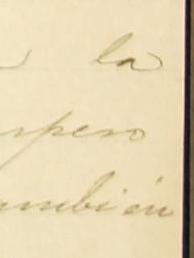 la
spero
ambién